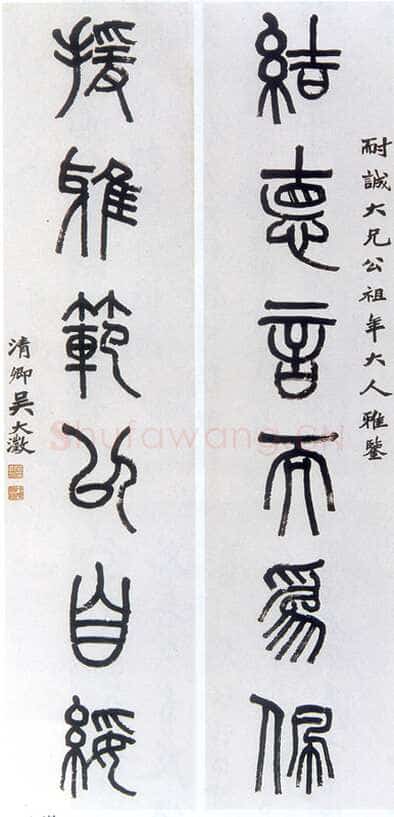 耐誠大兄公祖年大人雅鑒
結悳言而爲佩
援雅範以自綏
清卿吳大澂
Shufawang.CN